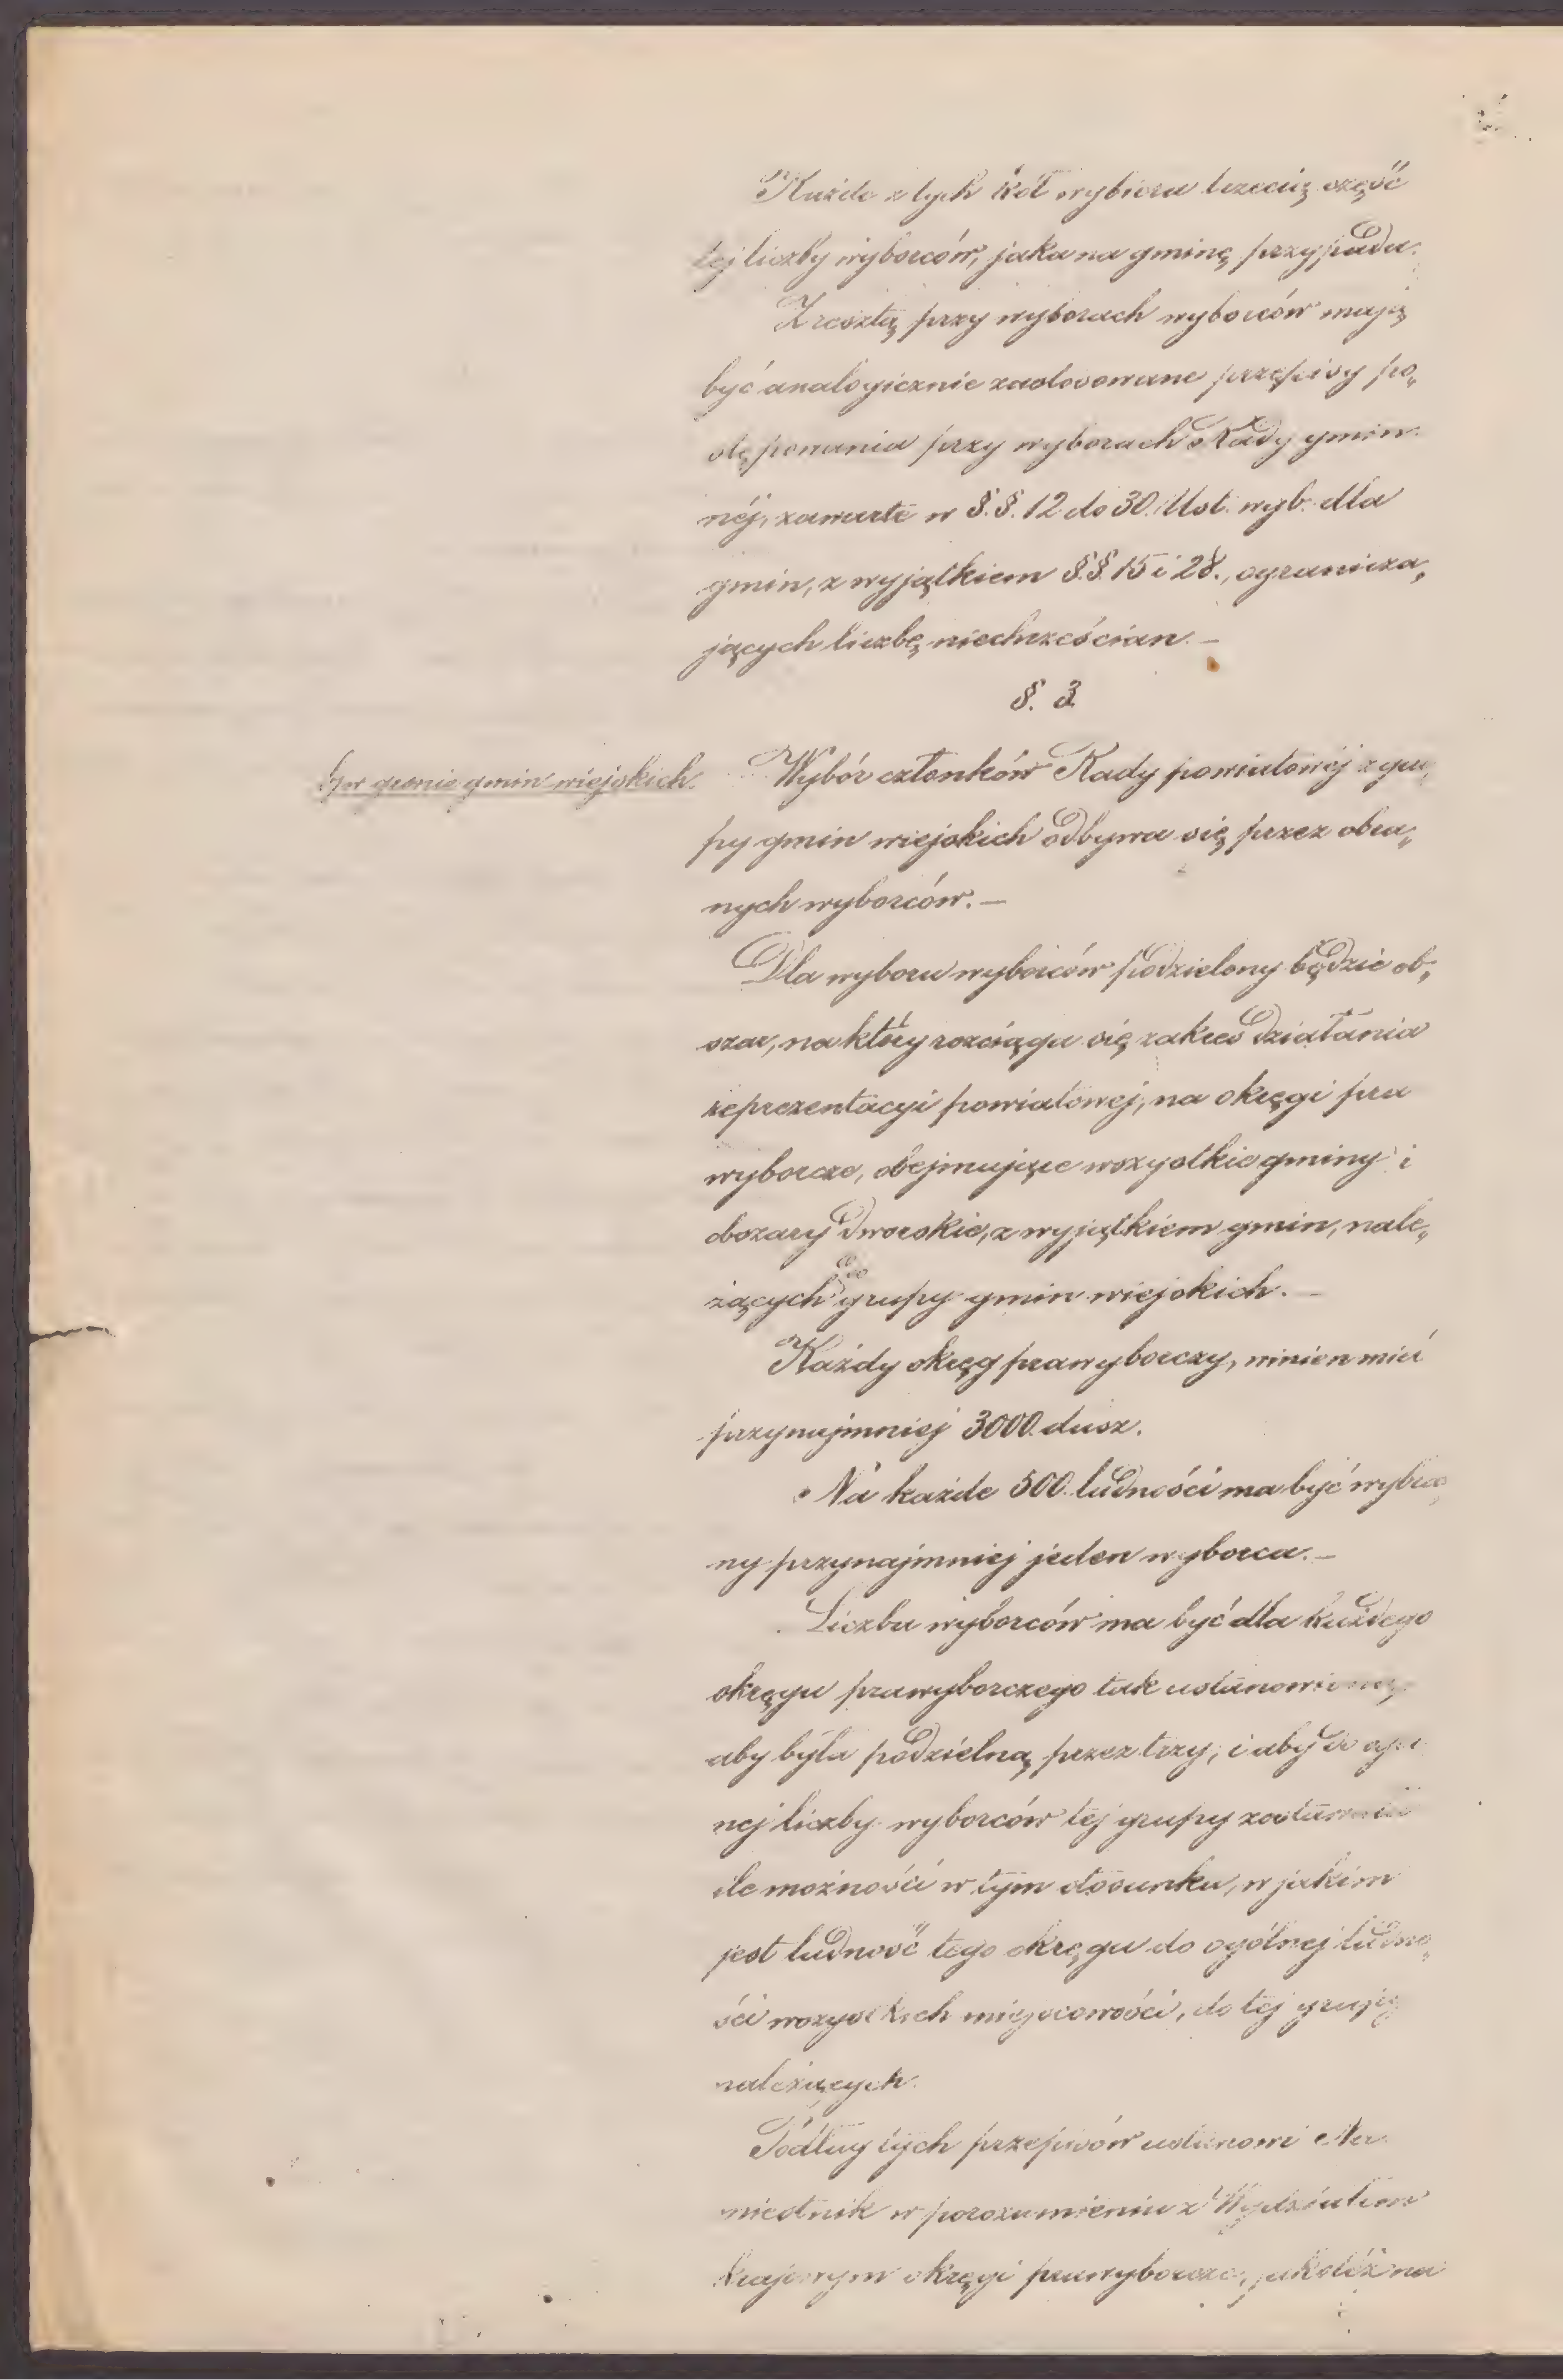 Każde z tych kół wybiera trzecią część
tej liczby wyborców, jaka na gminę przypada.
Zresztą przy wyborach wyborców mają
być analogicznie zastosowane przepisy po„
stępowania przy wyborach Rady gmin„
nej, zawarte w §.§. 12 do 30. Ust. wyb. dla
gmin, z wyjątkiem §.§. 15 i 28., ogranicza„
jących liczbę niechrześcian. –
§. 3.
b/w gronie gmin wiejskich.
Wybór członków Rady powiatowej z gru„
py gmin wiejskich odbywa się przez obra„
nych wyborców. –
Dla wyboru wyborców podzielony będzie ob„
szar, na który rozciąga się zakres działania
reprezentacyi powiatowej, na okręgi pra
wyborcze, obejmujące wszystkie gminy i
obszary dworskie, z wyjątkiem gmin, nale„
żących do grupy gmin wiejskich. –
Każdy okręg prawyborczy, winien mieć
przynajmniej 3000 dusz.
Na każde 500 ludności ma być wybra„
ny przynajmniej jeden wyborca. –
Liczba wyborców ma być dla każdego
okręgu prawyborczego tak ustanowioną,
aby była podzielną przez trzy, i aby do ogól
nej liczby wyborców tej grupy zostawała
ile możności w tym stosunku, w jakim
jest ludność tego okręgu do ogólnej ludno„
ści wszystkich miejscowości, do tej grupy
należących.
Podług tych przepisów ustanowi Na
miestnik w porozumieniu z Wydziałem
krajowym okręgi prawyborcze, jakotéż na